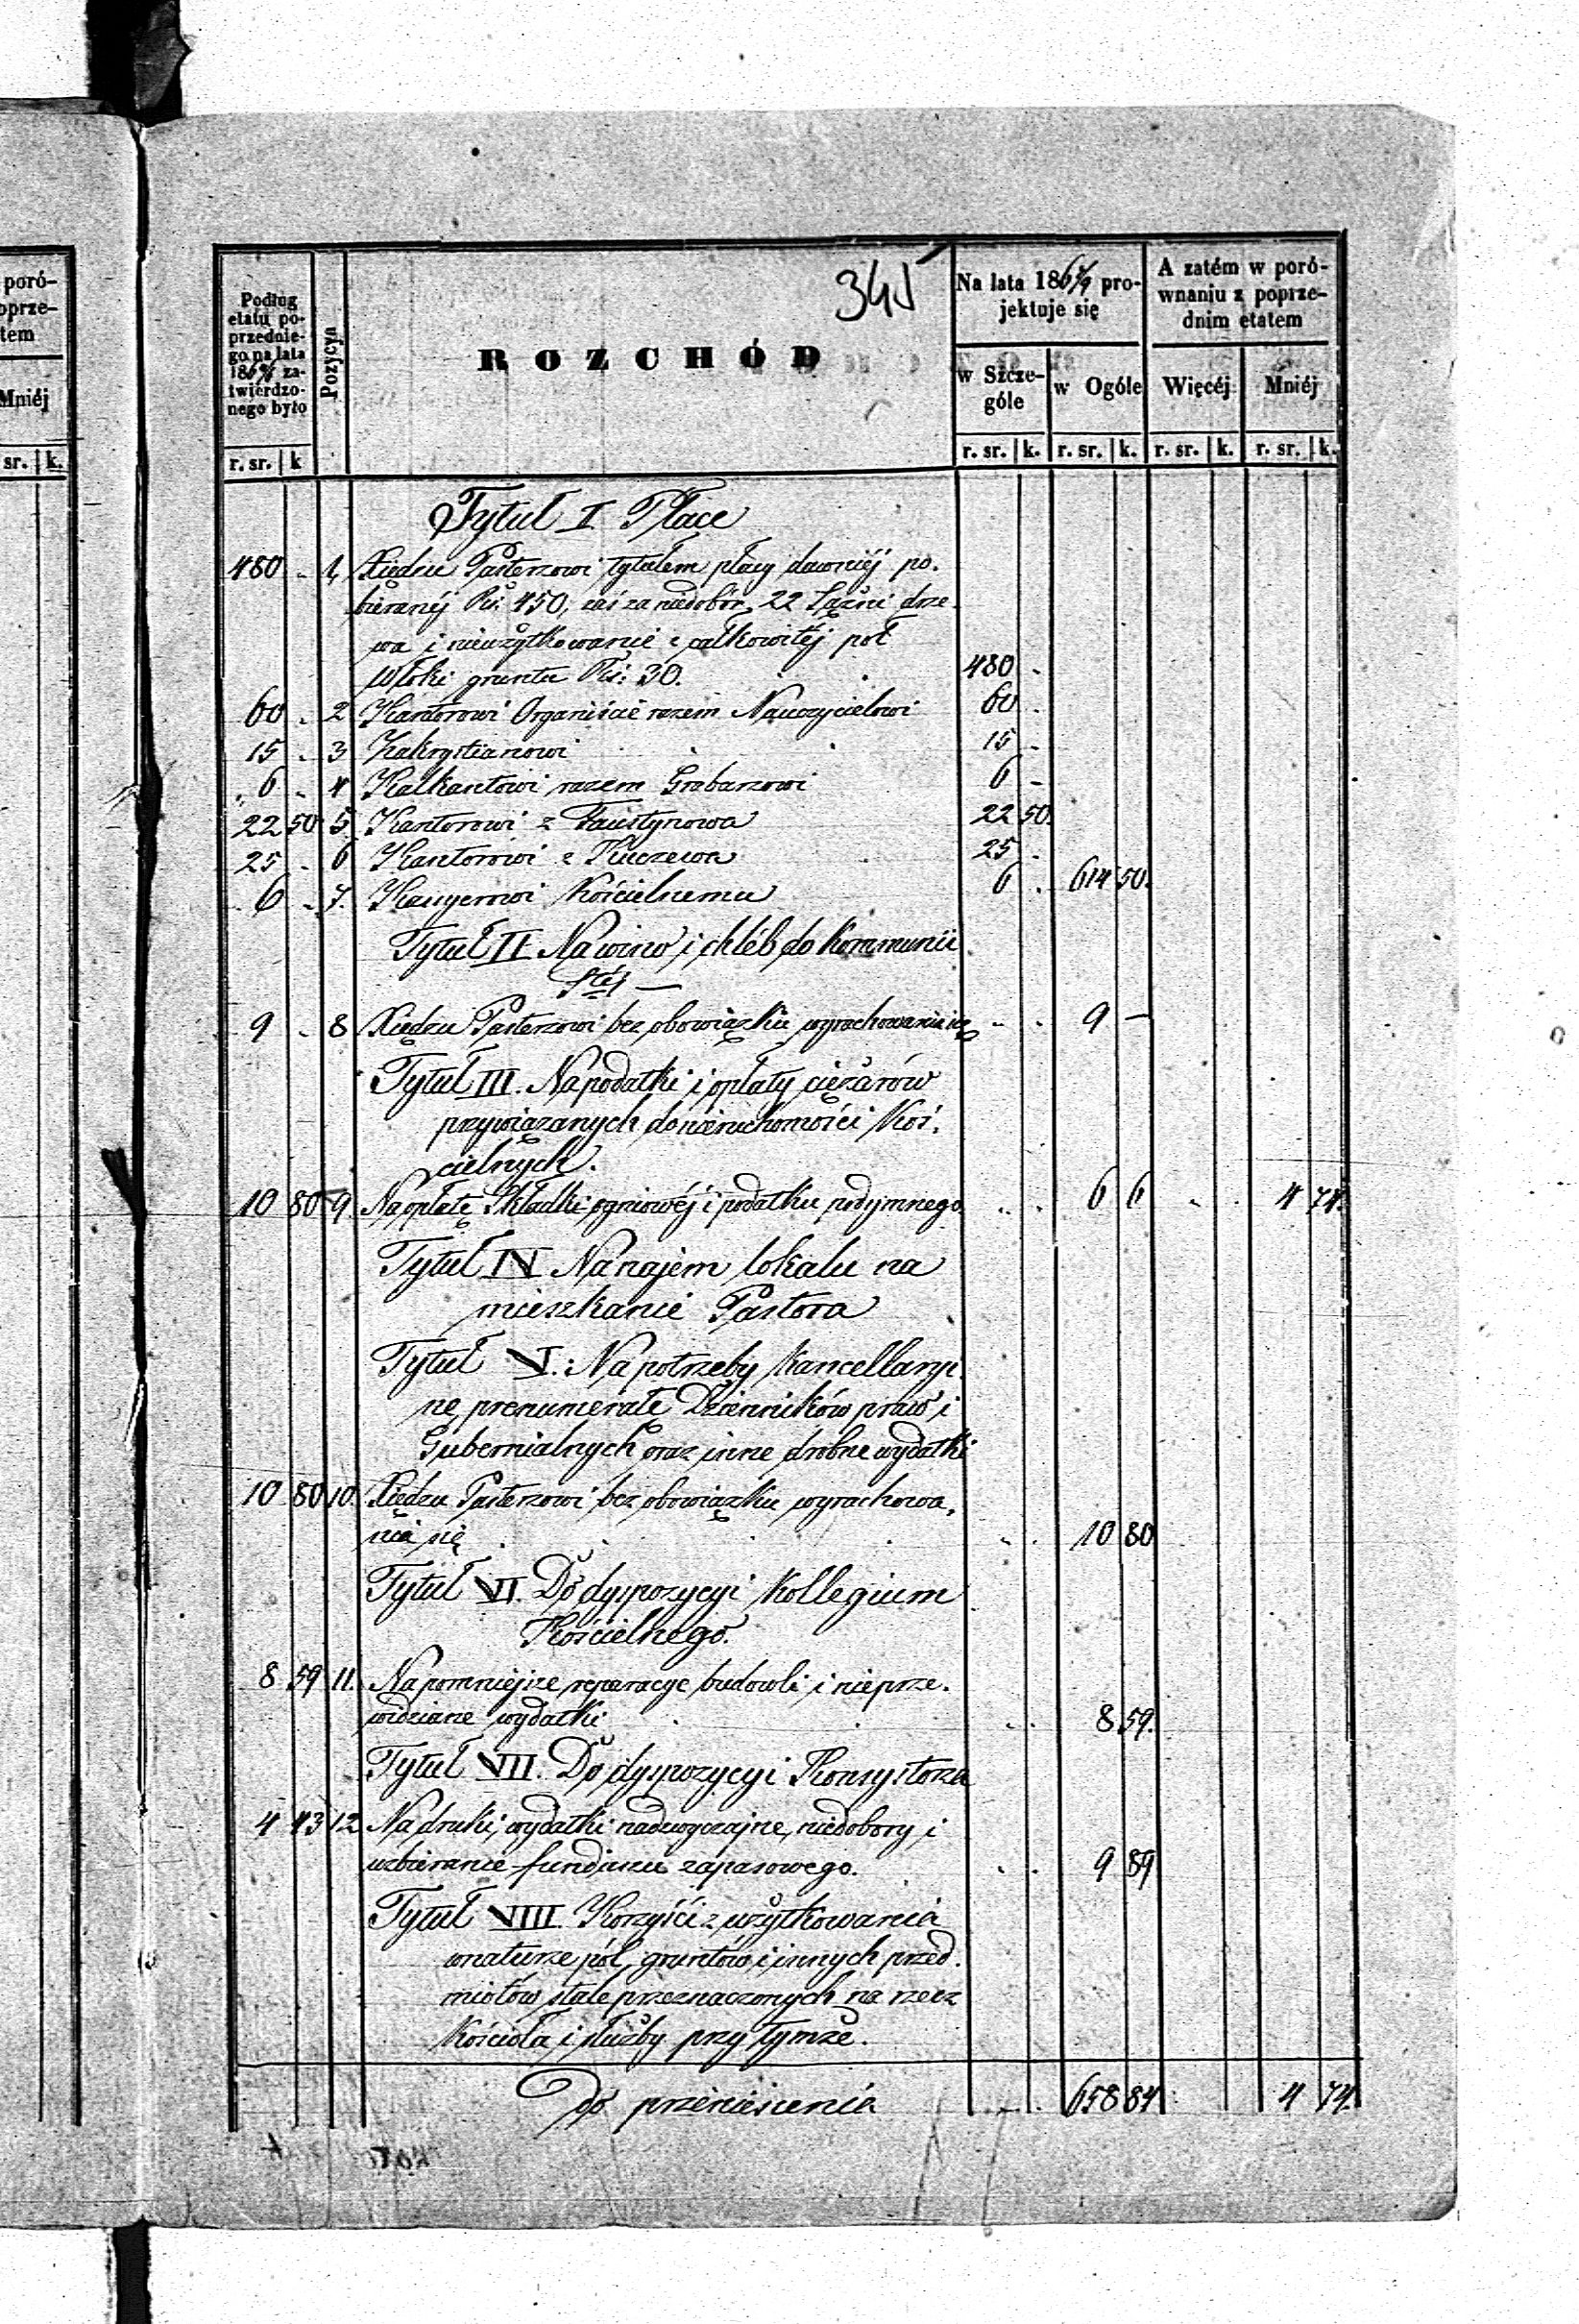 poró-
oprze-
tem
Mniéj
sr. k.
345
Podług etatu po-przednie-go na lata 186 za-twierdzo-nego było
Pozycya
ROZCHÓD
Na lata 186 pro-jektuje się
A zatém w poró-wnaniu z poprze-dnim etatem
w Szcze-góle
w Ogóle
Więcéj
Mniéj
r. sr. k r. sr. k. r. sr. k. r. sr. k. r. sr. k.
Tytuł I Płace
480 - 1, Xiędzu Pasterzowi tytułem płacy dawniéj po-
bieranéj Rs: 450, zaś za niedobór 22 Sążni drze-
wa i nieużytkowanie całkowitéj pół
Włóki gruntu Rs: 30. 480 -
60 - 2 Kantorowi Organiście razem Nauczycielowi 60 -
15 - 3 Zakrystianowi 15 -
6 - 4 Kalkantowi razem Grabarzowi 6 -
22 50 5 Kantorowi z Faustynowa 22 50.
25 - 6 Kantorowi z Kuczewa 25 -
6 - 7. Kościelnemu 6 - 614 50.
Tytuł II Na wino i chléb do Kommunii
Stéj —
9 - 8 Xiędzu Pasterzowi bez obowiązku wyrachowania się 9 -
Tytuł III. Na podatki i opłaty ciężarów
przywiązanych do nieruchomości Koś-
cielnych.
10 80 9. Na opłatę Składki ogniowéj i podatku podymnego 6 6 4 74.
Tytuł IV Na najem lokalu na
mieszkanie Pastora
Tytuł V. Na potrzeby Kancellaryj-
ne, prenumeratę Dzienników praw i
Gubernialnych oraz inne drobne wydatki
10 80 10. Xiędzu Pasterzowi bez obowiązku wyrachowa-
nia się 10 80
Tytuł VI. Do dyspozycyi Kollegium
Kościelnego.
8 59 11. Na pomniejsze reparacye budowli i nieprze-
widziane wydatki 8 59.
Tytuł VII. Do dyspozycyi Konsystorza
4 43 12 Na druki, wydatki nadzwyczajne, niedobory i
uzbieranie funduszu zapasowego. 9 89
Tytuł VIII. Korzyści z użytkowania
w naturze pól, gruntów i innych przed-
miotów stale przeznaczonych na rzecz
Kościoła i służby przy tymże.
Do przeniesienia 658 84 4 74.